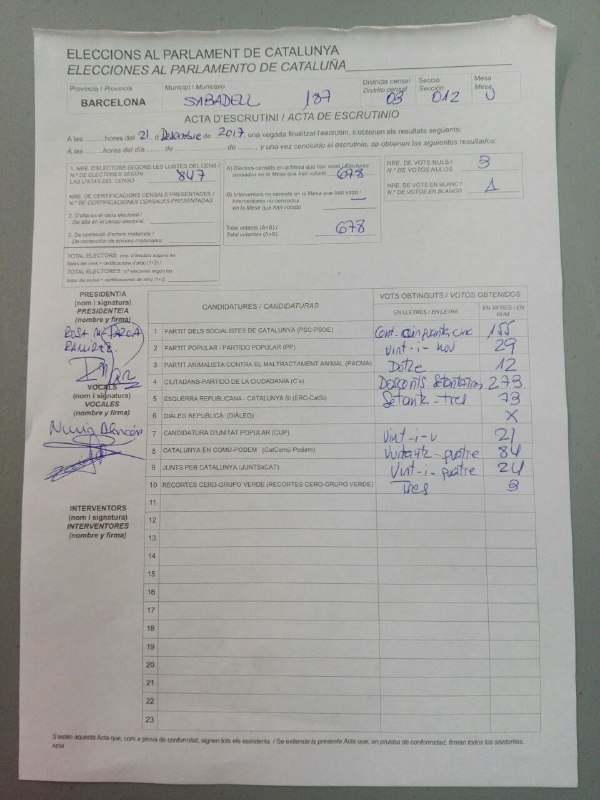 ELECCIONS AL PARLAMENT DE CATALUNYA
ELECCIONES AL PARLAMENTO DE CATALUÑA
Província / Provincia
BARCELONA
Municipi / Municipio
SABADELL 187
Districte censal
Distrito censal
03
Secció
Sección
012
Mesa
Mesa
U
ACTA D'ESCRUTINI / ACTA DE ESCRUTINIO
A les hores del 21 d Desembre de 2017 una vegada finalitzat l'escrutini, s'obtenen els resultats següents:
A las horas del día de de y una vez concluido el escrutinio, se obtienen los siguientes resultados:
1. NRE. D'ELECTORS SEGONS LES LLISTES DEL CENS /
N.º DE ELECTORES SEGÚN
LAS LISTAS DEL CENSO
847
NRE. DE CERTIFICACIONS CENSALS PRESENTADES /
N.º DE CERTIFICACIONES CENSALES PRESENTADAS
2. D'alta en el cens electoral /
De alta en el censo electoral
3. De correcció d'errors materials /
De corrección de errores materiales
TOTAL ELECTORS: (nre. d'electors segons les
llistes del cens + certificacions d'alta) (1+2) /
TOTAL ELECTORES: (n.º electores según las
listas del censo + certificaciones de alta) (1+2)
A) Electors censats en la Mesa que han votat / Electores
censados en la Mesa que han votado
678
B) Interventors no censats en la Mesa que han votat /
Interventores no censados
en la Mesa que han votado
—
Total votants (A+B) /
Total votantes (A+B)
678
NRE. DE VOTS NULS /
N.º DE VOTOS NULOS
3
NRE. DE VOTS EN BLANC /
N.º DE VOTOS EN BLANCO
1
PRESIDENT/A
(nom i signatura)
PRESIDENTE/A
(nombre y firma)
ROSA Mª
RAMIREZ
VOCALS
(nom i signatura)
VOCALES
(nombre y firma)
Nuria Alarcón
INTERVENTORS
(nom i signatura)
INTERVENTORES
(nombre y firma)
CANDIDATURES / CANDIDATURAS
VOTS OBTINGUTS / VOTOS OBTENIDOS
EN LLETRES / EN LETRA
EN XIFRES / EN NÚM.
1 PARTIT DELS SOCIALISTES DE CATALUNYA (PSC-PSOE) Cent cinquanta cinc 155
2 PARTIT POPULAR / PARTIDO POPULAR (PP) vint-i-nou 29
3 PARTIT ANIMALISTA CONTRA EL MALTRACTAMENT ANIMAL (PACMA) Dotze 12
4 CIUTADANS-PARTIDO DE LA CIUDADANÍA (C's) Doscents Setantatres 273
5 ESQUERRA REPUBLICANA - CATALUNYA SÍ (ERC-CatSí) Setanta-tres 73
6 DIÀLEG REPUBLICÀ (DIÀLEG) X
7 CANDIDATURA D'UNITAT POPULAR (CUP) Vint-i-u 21
8 CATALUNYA EN COMÚ-PODEM (CatComú-Podem) Vuitanta-quatre 84
9 JUNTS PER CATALUNYA (JUNTSxCAT) Vint-i-quatre 24
10 RECORTES CERO-GRUPO VERDE (RECORTES CERO-GRUPO VERDE) Tres 3
11
12
13
14
15
16
17
18
19
20
21
22
23
S'estén aquesta Acta que, com a prova de conformitat, signen tots els assistents. / Se extiende la presente Acta que, en prueba de conformidad, firman todos los asistentes.
AEM